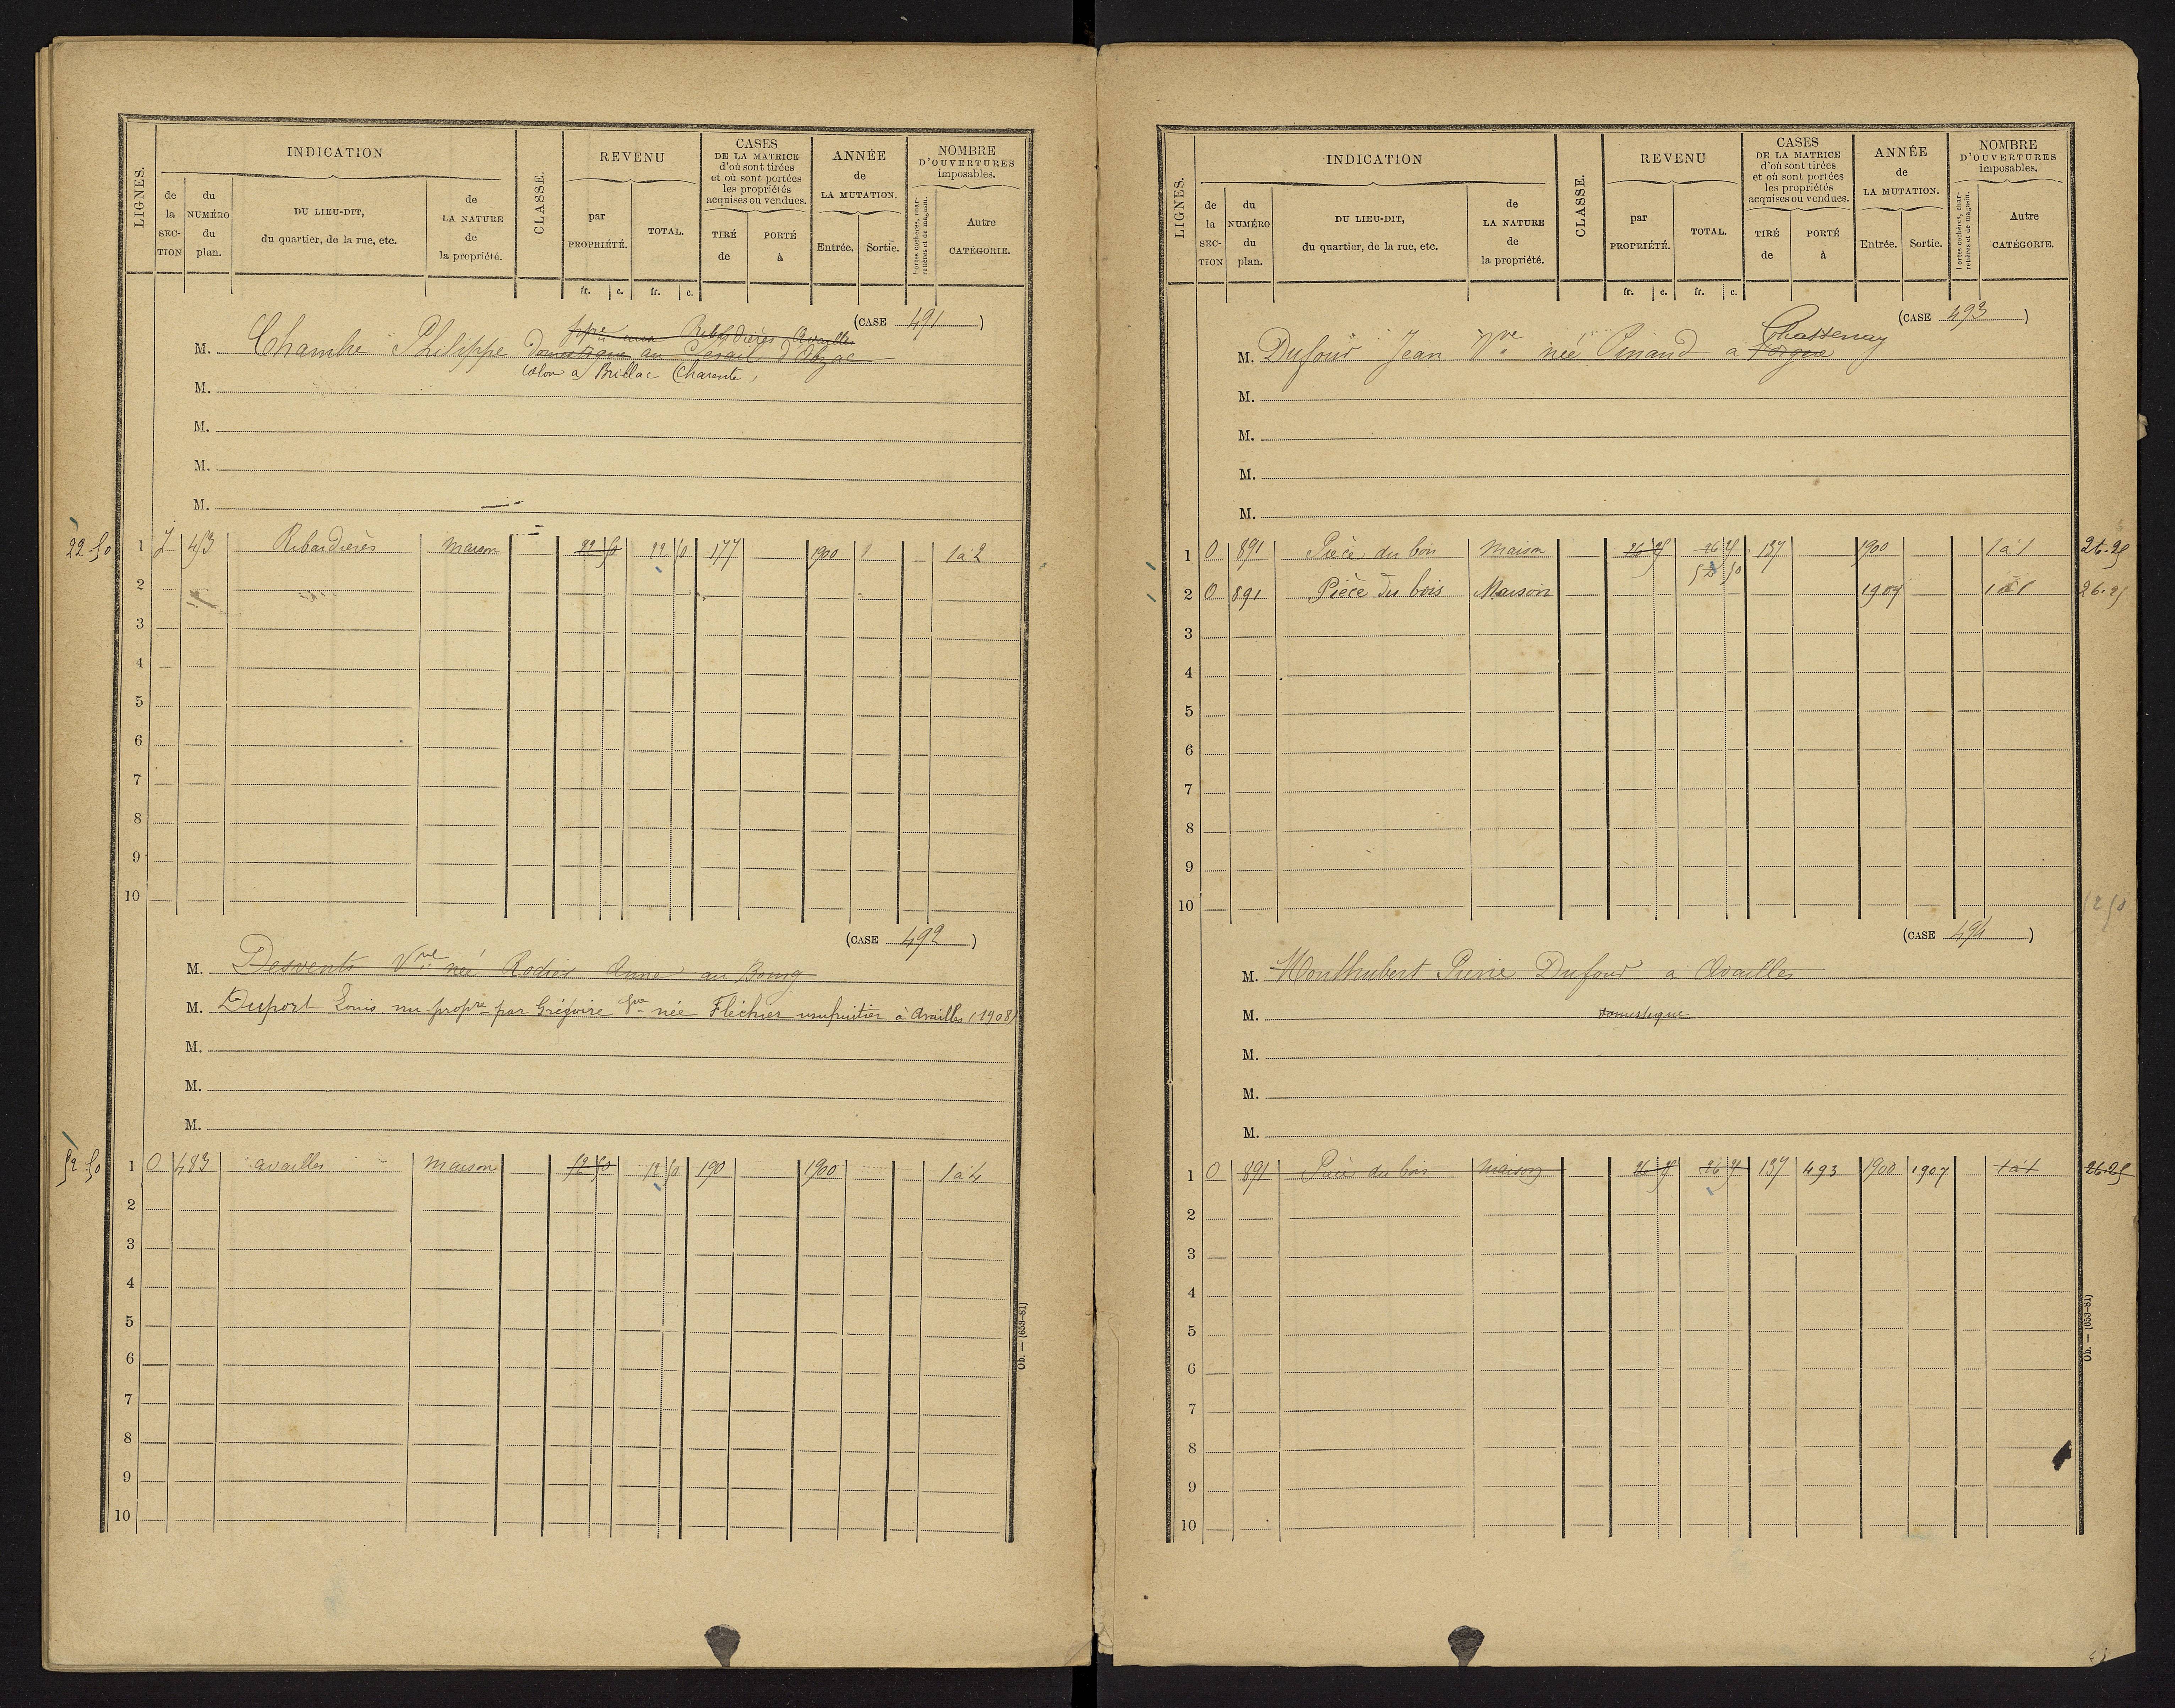 LIGNES.
INDICATION
de la SECTION
du NUMÉRO du plan.
DU LIEU-DIT, du quartier, de la rue, etc.
de LA NATURE de la propriété.
CLASSE.
REVENU
par PROPRIÉTÉ.
TOTAL.
CASES DE LA MATRICE d'où sont tirées et où sont portées les propriétés acquises ou vendues.
TIRÉ de
PORTÉ à
ANNÉE de LA MUTATION.
Entrée.
Sortie.
NOMBRE D'OUVERTURES imposables.
Portes cochères, charretières et de magasin.
Autre CATÉGORIE.
fr. c. fr. c.
(CASE 491)
aux Ribardières Availles
M. Chambre Philippe domestique au d'Abzac
colon a Brillac Charente,
M.
M.
M.
M.
22-50 1 453 Ribardières maison 22 50 22 50 177 1900 1 à 2
2
3
4
5
6
7
8
9
10
(CASE 492)
M. Desvents Vve née Rodier Anne au Bourg
M. Duport Louis nu-propre par Grégoire Vve née Fléchier usufruitier à Availles (1908)
M.
M.
M.
52-50 1 O 483 availles maison 52 50 52 50 190 1900 1 à 4
2
3
4
5
6
7
8
9
10
Ob. — (653-81)
LIGNES.
INDICATION
de la SECTION
du NUMÉRO du plan.
DU LIEU-DIT, du quartier, de la rue, etc.
de LA NATURE de la propriété.
CLASSE.
REVENU
par PROPRIÉTÉ.
TOTAL.
CASES DE LA MATRICE d'où sont tirées et où sont portées les propriétés acquises ou vendues.
TIRÉ de
PORTÉ à
ANNÉE de LA MUTATION.
Entrée.
Sortie.
NOMBRE D'OUVERTURES imposables.
Portes cochères, charretières et de magasin.
Autre CATÉGORIE.
fr. c. fr. c.
(CASE 493)
Chastenay
M. Dufour Jean Vve née Pinaud a Forgue
M.
M.
M.
M.
1 O 891 Pièce du bois Maison 26 25 26 25 137 1900 1 à 1 26-25
52 50
2 O 891 Pièce du bois Maison 1907 1 à 1 26-25
3
4
5
6
7
8
9
10
52 50
(CASE 494)
M. Monthubert Pierre Dufour a Availles
M. domestique
M.
M.
M.
1 O 891 Pièce du bois maison 26 25 26 25 137 493 1900 1907 1 à 1 26-25
2
3
4
5
6
7
8
9
10
Ob. — (653-81)